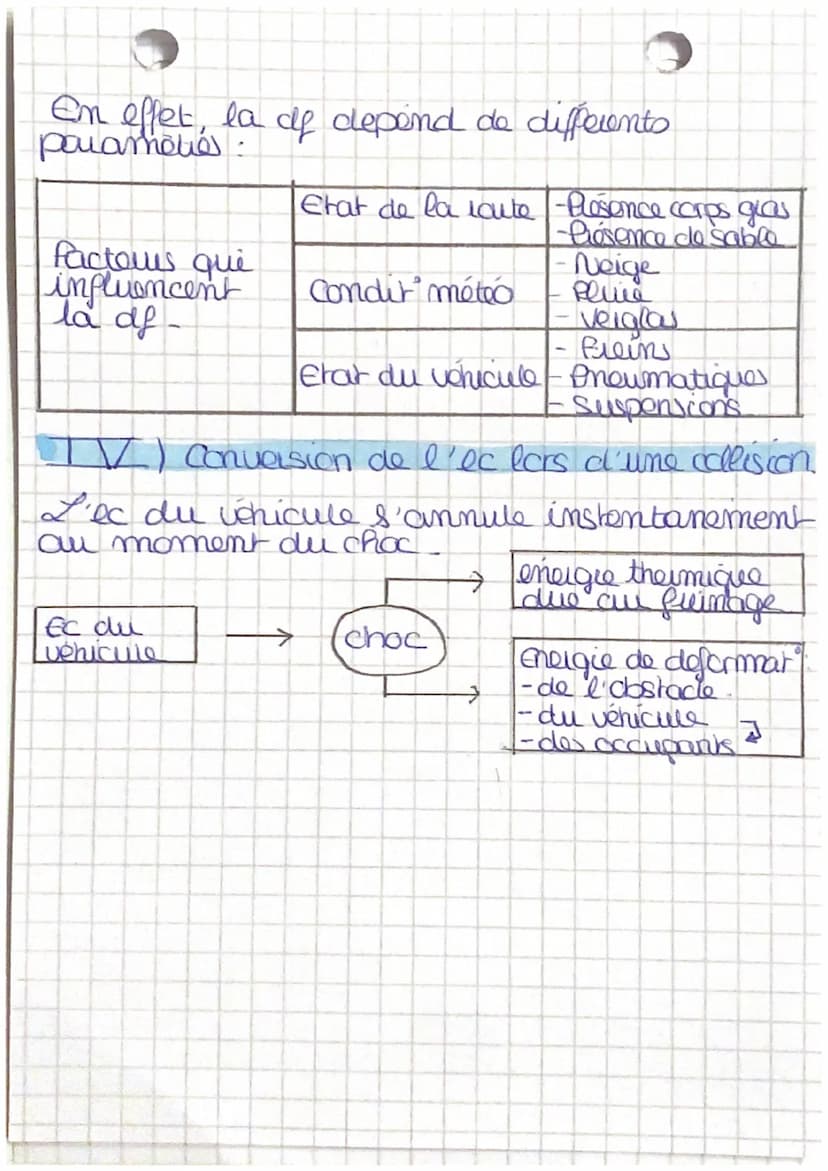 En effet, la df dépend de différents
paramètres :
Etat de la route
-Présence corps gras
-Présence de sable
Facteurs qui
influencent
la df.
Condit° météo
- Neige
- Pluie
- Verglas
Etat du véhicule
- Freins
- Pneumatiques
- Suspensions
IV) Conversion de l'ec lors d'une collision.
L'ec du véhicule s'annule instentanément
au moment du choc.
Ec du
véhicule
choc
énergie thermique
due au freimage
Energie de déformat°:
-de l'obstacle.
-du véhicule
-des occupants